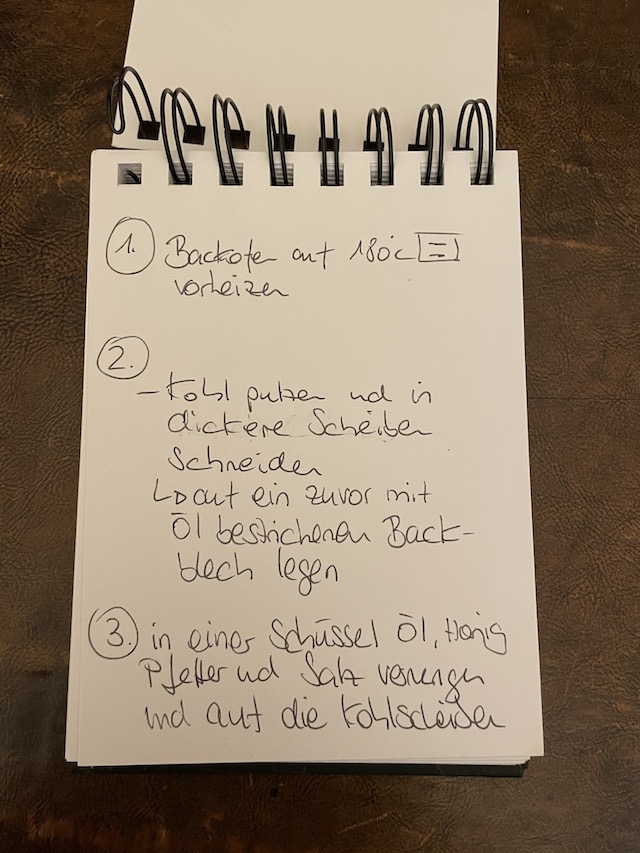 1. Backofen auf 180°C
vorheizen
2.
- Kohl putzen und in
dickere Scheiben
schneiden
↳ auf ein zuvor mit
Öl bestrichenen Back-
blech legen
3. in einer Schüssel Öl, Honig
Pfeffer und Salz vermengen
und auf die Kohlscheiben